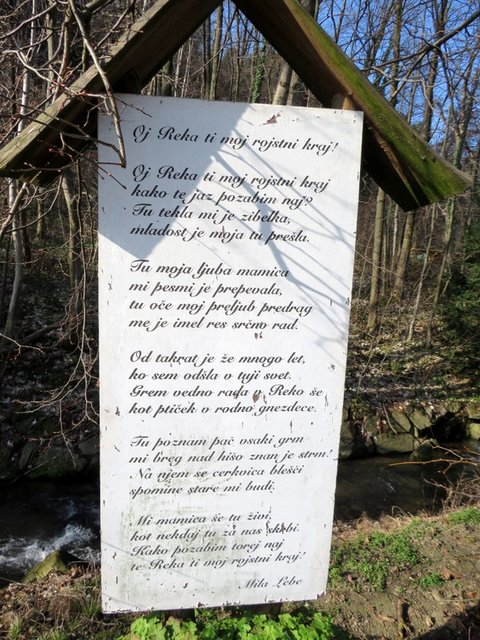 Oj Reka ti moj rojstni kraj!
Oj Reka ti moj rojstni kraj
kako te jaz pozabim naj?
Tu tekla mi je zibelka,
mladost je moja tu prešla.
Tu moja ljuba mamica
mi pesmi je prepevala,
tu oče moj preljub predrag
me je imel res srčno rad.
Od takrat je že mnogo let,
ko sem odšla v tuji svet.
Grem vedno rada v Reko še
kot ptiček v rodno gnezdece.
Tu poznam pač vsaki grm
mi breg nad hišo znan je strm!
Na njem se cerkvica blešči
spomine stare mi budi.
Mi mamica še tu živi,
kot nekdaj tu za nas skrbi.
Kako pozabim torej naj
te Reka ti moj rojstni kraj!
Mila Lebe